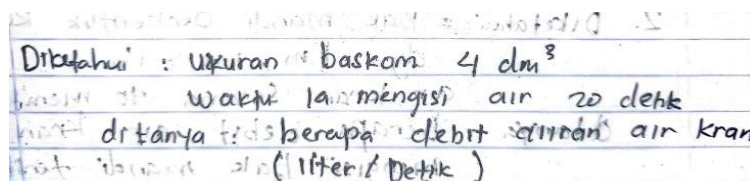 Diketahui : ukuran baskom 4 dm³
waktu lamengisi air 20 detik
ditanya : berapa debit aliran air kran
(liter/Detik)